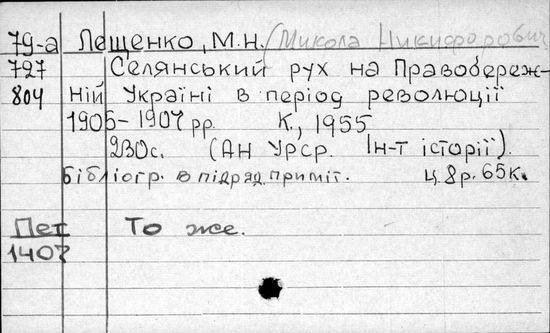 79-а Лещенко, М.Н. (Микола Никифорович
727 Селянський рух на Правобереж-
804 ній Україні в період революції
1905-1907 рр. К., 1955
230с. (АН УРСР. Ін-т історії).
бібліогр. в підряд. приміт. ц. 8р. 65к.
Пет То же.
1407